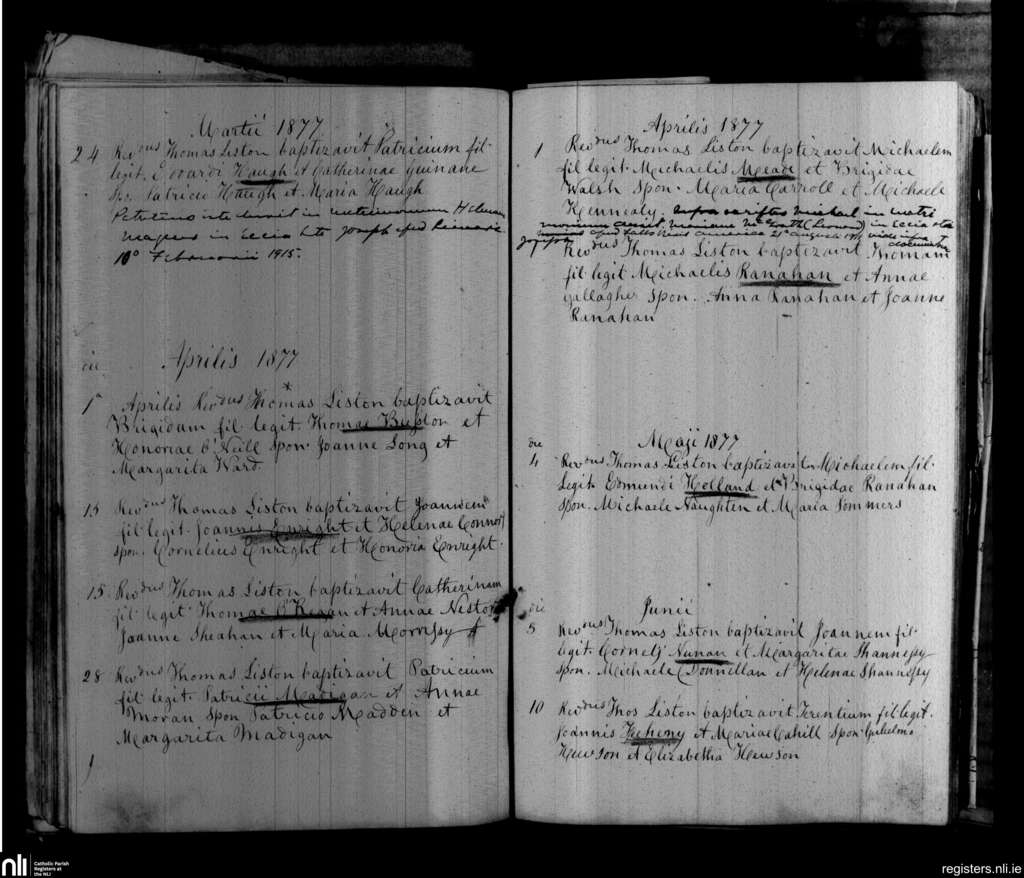 Martii 1877
24 Revdus Thomas Liston baptizavit Patricium fil.
legit. Edwardi Haugh et Catherinae Guinane
Spo. Patricio Haugh et Maria Haugh
in matrimonium Helenam
in Ecclia Sti Joseph apud Limerick
10o Februarii 1915.
die Aprilis 1877
1a Aprilis Revdus Thomas Liston baptizavit
Brigidam fil legit Thomae Buston et
Honoriae O'Neill Spon Joanne Long et
Margarita Ward.
15 Revdus Thomas Liston baptizavit Joannem
fil legit. Joannis Enright et Helenae Connor
spon. Cornelius Enright et Honoria Enright.
15 Revdus Thomas Liston baptizavit Catherinam
fil legit Thomae O'Regan et Annae Nestor
Joanne Sheahan et Maria Morrissy
28 Revdus Thomas Liston baptizavit Patricium
fil legit. Patricii Madigan et Annae
Moran Spon Patricio Madden et
Margarita Madigan
Aprilis 1877
1 Revdus Thomas Liston baptizavit Michaelem
fil legit. Michaelis Meade et Brigidae
Walsh Spon. Maria Carroll et Michaele
Kennealy. Infra scriptus Michael in matri
monium in Ecclia Sti
apud America 21a Augusti vide infra
Joseph document
Revdus Thomas Liston baptizavit Thomam
fil legit Michaelis Ranahan et Annae
Gallagher Spon. Anna Ranahan et Joanne
Ranahan
die Maji 1877
4 Revdus Thomas Liston baptizavit Michaelem fil.
Legit. Edmundi Holland et Brigidae Ranahan
Spon. Michaele Naughten et Maria Sommers
die Junii
5 Revdus Thomas Liston baptizavit Joannem fil.
legit. Cornelj Nunan et Margaritae Shannessy
spon. Michaele Donnellan et Helenae Shannessy
10 Revdus Thos Liston baptizavit Terentium fil legit.
Joannis Heheny et Mariae Cahill Spon. Gulielmo
Hewson et Elizabetha Hewson
nli Catholic Parish
Registers at
the NLI
registers.nli.ie